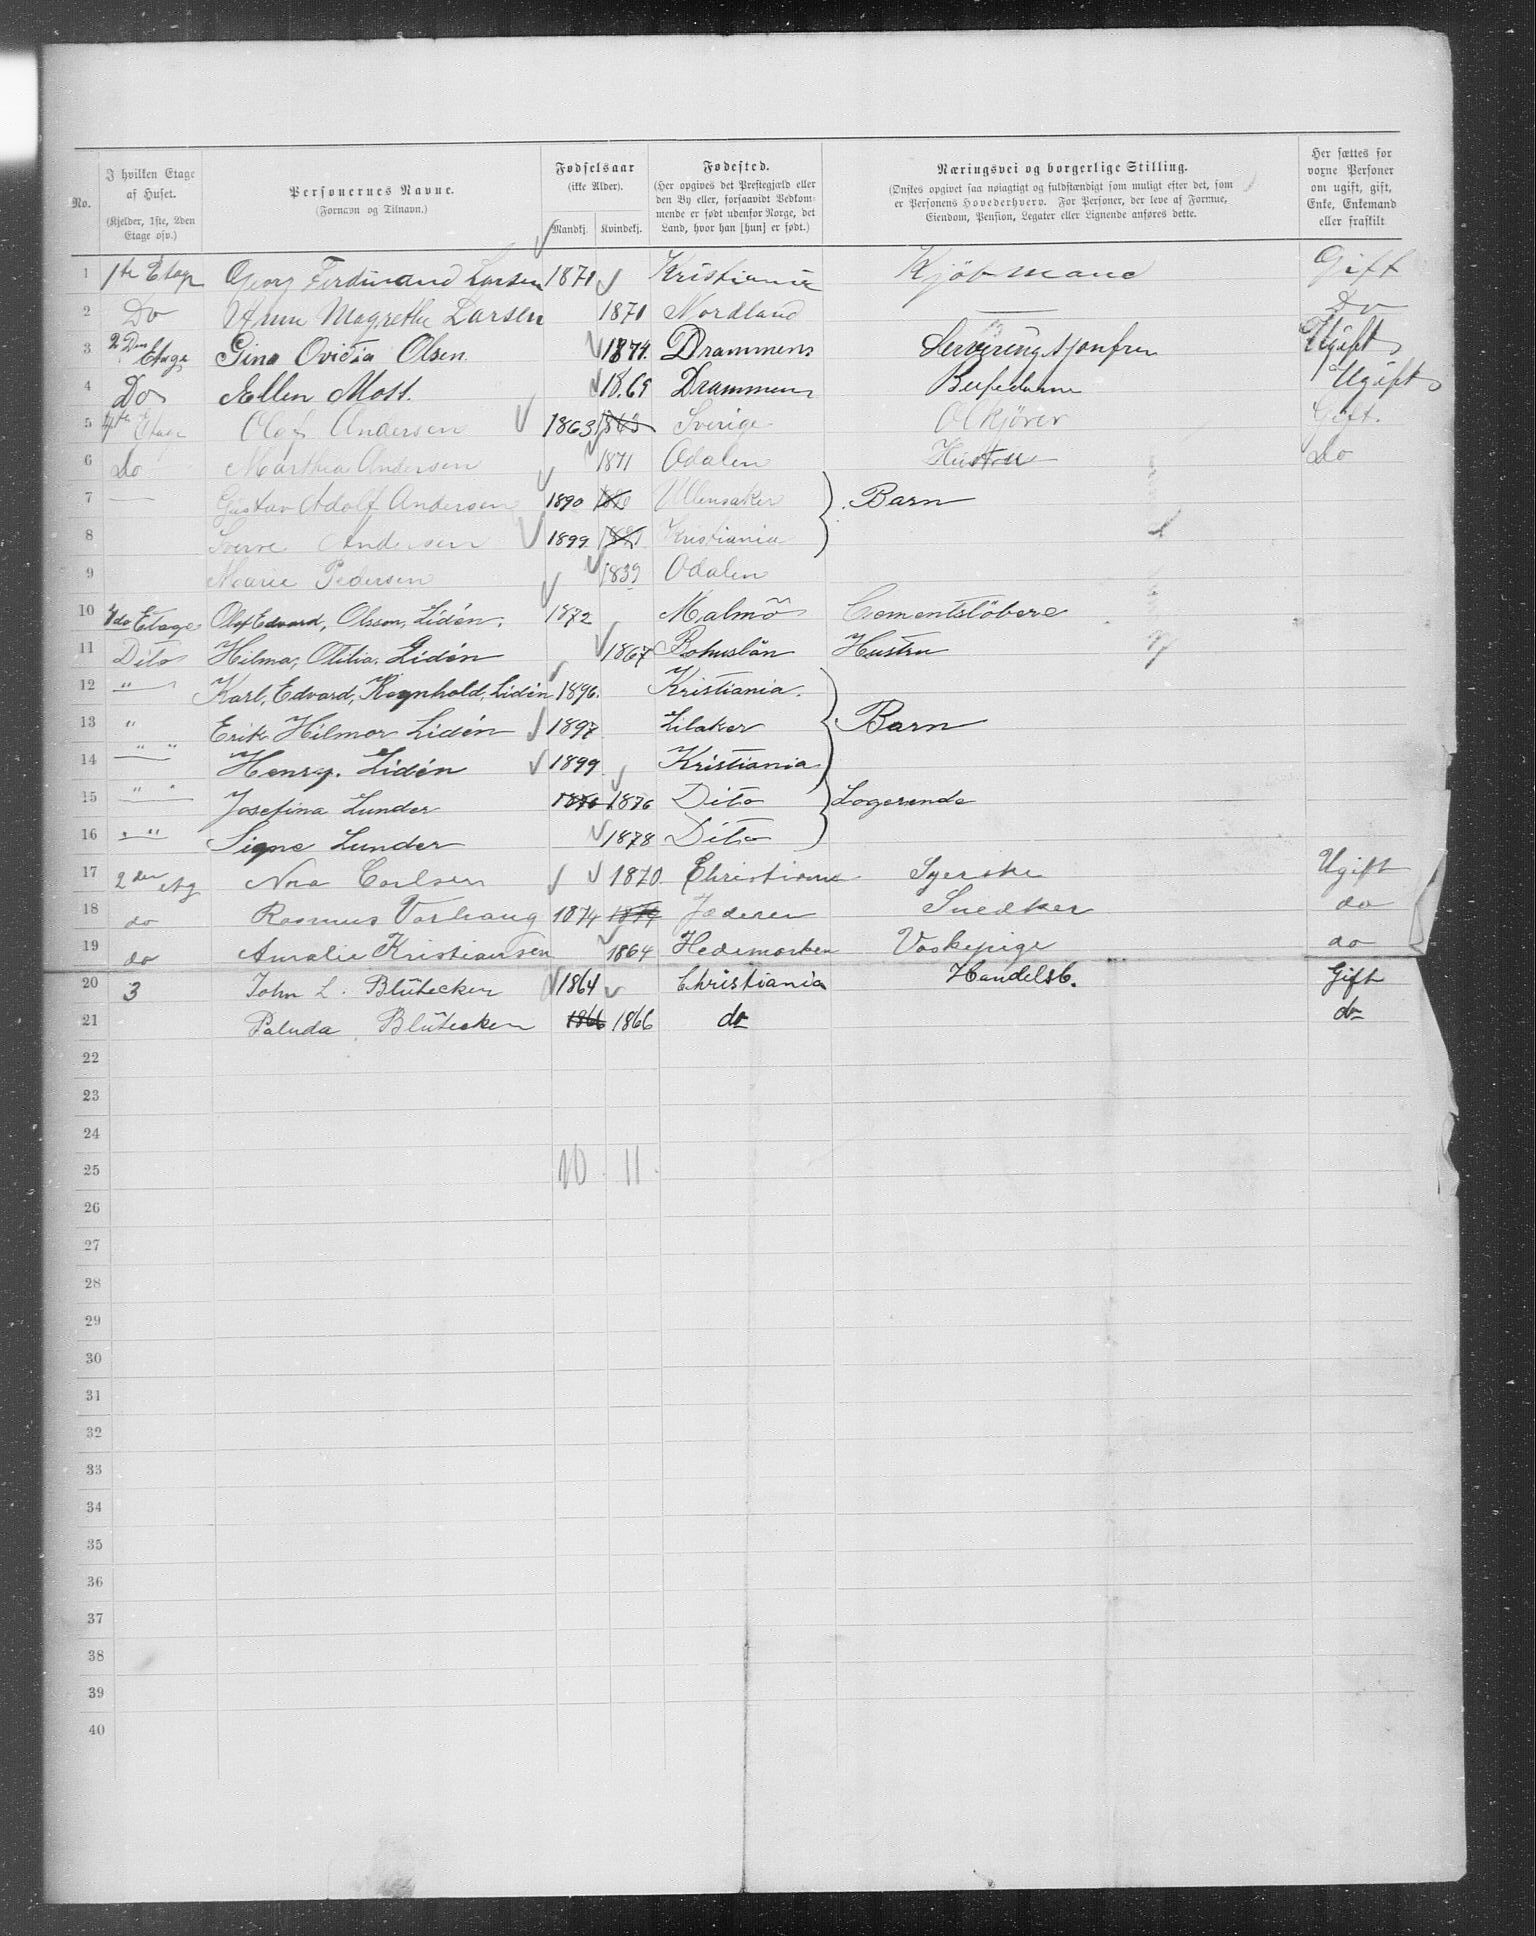 No. | I hvilken Etage af Huset. (Kjelder, 1ste, 2den Etage osv.) | Personernes Navne. (Fornavn og Tilnavn.) | Fødselsaar (ikke Alder). Mandkj. | Kvindekj. | Fødested. (Her opgives det Prestegjæld eller den By eller, forsaavidt Vedkommende er født udenfor Norge, det Land, hvor han [hun] er født.) | Næringsvei og borgerlige Stilling. (Ønskes opgivet saa nøiagtigt og fuldstændigt som muligt efter det, som er Personens Hovederhverv. For Personer, der leve af Formue, Eiendom, Pension, Legater eller Lignende anføres dette. | Her sættes for voxne Personer om ugift, gift, Enke, Enkemand eller fraskilt
1 1te Etage Georg Ferdinand Larsen 1871 Kristiania Kjöbmand Gift
2 Do Anna Magrethe Larsen 1871 Nordland — Do
3 2Den Etage Gina Ovidia Olsen 1874. Drammens Serveringsjonfru Ugift
4 Do Ellen Moss. 18.69 Drammens Ugift
5 4te Etage Olaf Andersen 1863 1863 Sverige Olkjörer Gift.
6 Do Marthea Andersen 1871 Odalen Hustru Do
7 — Gustav Adolf Andersen 1890 Ullensaker Barn
8 Sverre Andersen 1899 Kristiania
9 Marie Pedersen 1839 Odalen
10 4de Etage Olof Edvard, Olsson, Lidén. 1872 Malmö Cementstöbere
11 Dito Hilma, Otilia. Lidén 1867 Bohuslän Hustru
12 " Karl, Edvard, Ragnhold, Lidén 1896. Kristiania.
13 " Erik Hilmar Lidén 1897 Lilaker Barn
14 " " Henry. Lidén 1899 Kristiania
15 " " Josefina Lunder 1876 1876 Dito Logerende
16 " " Signe Lunder 1878 Dito
17 2den etg Nora Carlsen 1870. Christiania Syerske Ugift
18 do Rasmus Varhaug 1874 1874 Jæderen Snedker do
19 do Amalie Kristiansen 1864 Hedemarken Vaskepige do
20 3 John L. Blütecker 1864 Christiania Handelsb. Gift
21 Paluda Blütecker 1866 1866 do do
22
23
24
25 10. 11.
26
27
28
29
30
31
32
33
34
35
36
37
38
39
40